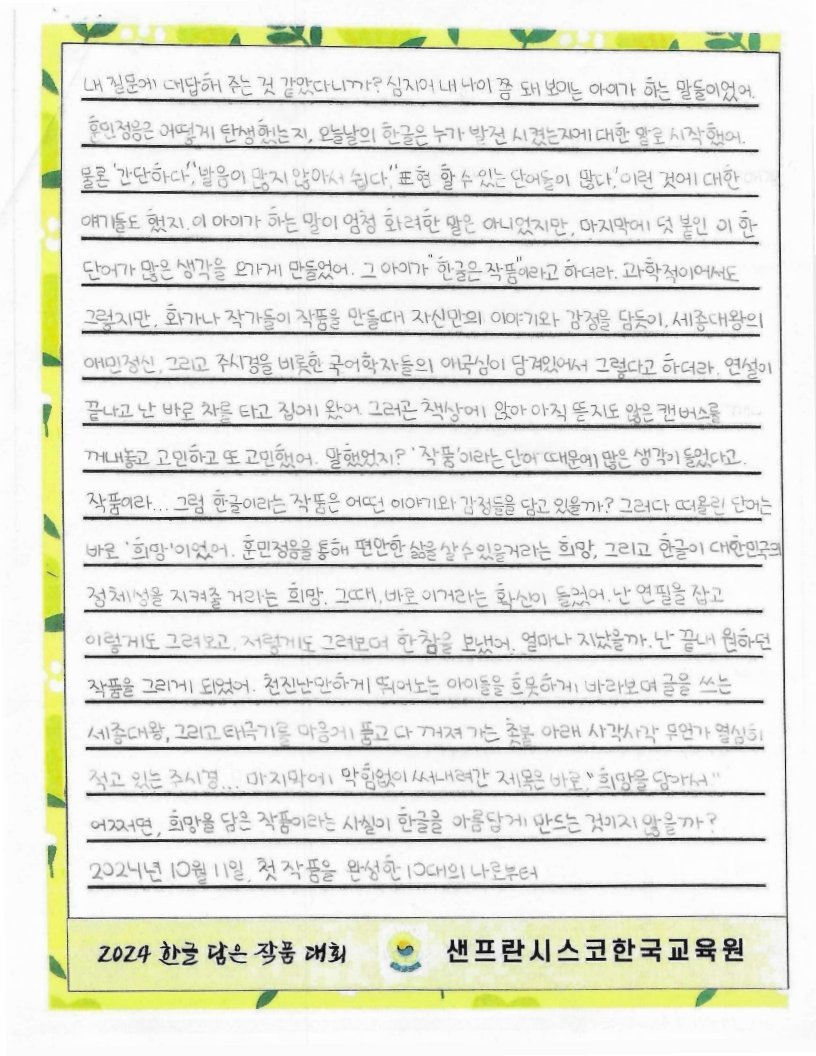 내 질문에 대답해 주는 것 같았다니까? 심지어 내 나이 쯤 돼 보이는 아이가 하는 말들이었어.
훈민정음은 어떻게 탄생했는지, 오늘날의 한글은 누가 발전 시켰는지에 대한 말로 시작했어.
물론 '간단하다', '발음이 많지 않아서 쉽다', '표현 할 수 있는 단어들이 많다.' 이런 것에 대한
얘기들도 했지. 이 아이가 하는 말이 엄청 화려한 말은 아니었지만, 마지막에 덧 붙인 이 한
단어가 많은 생각을 오가게 만들었어. 그 아이가 "한글은 작품"이라고 하더라. 과학적이어서도
그렇지만, 화가나 작가들이 작품을 만들때 자신만의 이야기와 감정을 담듯이, 세종대왕의
애민정신, 그리고 주시경을 비롯한 국어학자들의 애국심이 담겨있어서 그렇다고 하더라. 연설이
끝나고 난 바로 차를 타고 집에 왔어. 그러곤 책상에 앉아 아직 뜯지도 않은 캔버스를
꺼내놓고 고민하고 또 고민했어. 말했었지? '작품'이라는 단어 때문에 많은 생각이 들었다고.
작품이라... 그럼 한글이라는 작품은 어떤 이야기와 감정들을 담고 있을까? 그러다 떠올린 단어는
바로 '희망'이었어. 훈민정음을 통해 편안한 삶을 살 수 있을거라는 희망, 그리고 한글이 대한민국의
정체성을 지켜줄 거라는 희망. 그때, 바로 이거라는 확신이 들었어. 난 연필을 잡고
이렇게도 그려보고, 저렇게도 그려보며 한참을 보냈어. 얼마나 지났을까. 난 끝내 원하던
작품을 그리게 되었어. 천진난만하게 뛰어노는 아이들을 흐뭇하게 바라보며 글을 쓰는
세종대왕, 그리고 태극기를 마음에 품고 다 꺼져 가는 촛불 아래 사각사각 무언가 열심히
적고 있는 주시경... 마지막에 막힘없이 써내려간 제목은 바로, "희망을 담아서"
어쩌면, 희망을 담은 작품이라는 사실이 한글을 아름답게 만드는 것이지 않을까?
2024년 10월 11일, 첫 작품을 완성한 10대의 나로부터
2024 한글 담은 작품 대회
샌프란시스코한국교육원